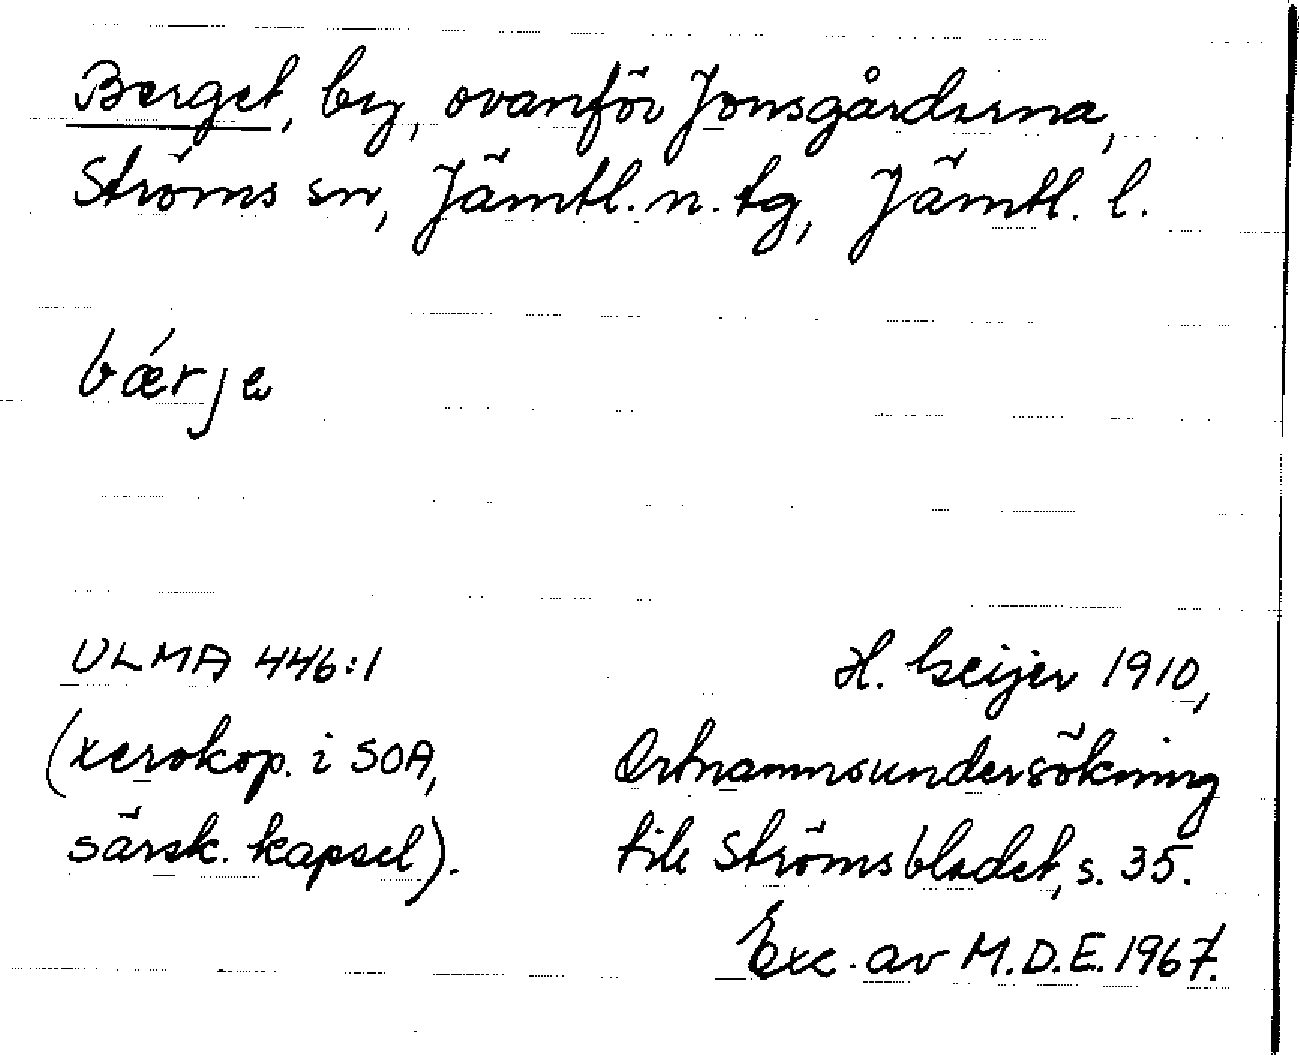 Berget, by, ovanför Jonsgårderna,
Ströms sn, Jämtl. n. tg, Jämtl. l.
bǽrje
ULMA 446:1
(xerokop. i SOA,
särsk. kapsel).
H. Geijer 1910,
Ortnamnsundersökning
till Strömsbladet, s. 35.
Exc. av M.D.E. 1967.